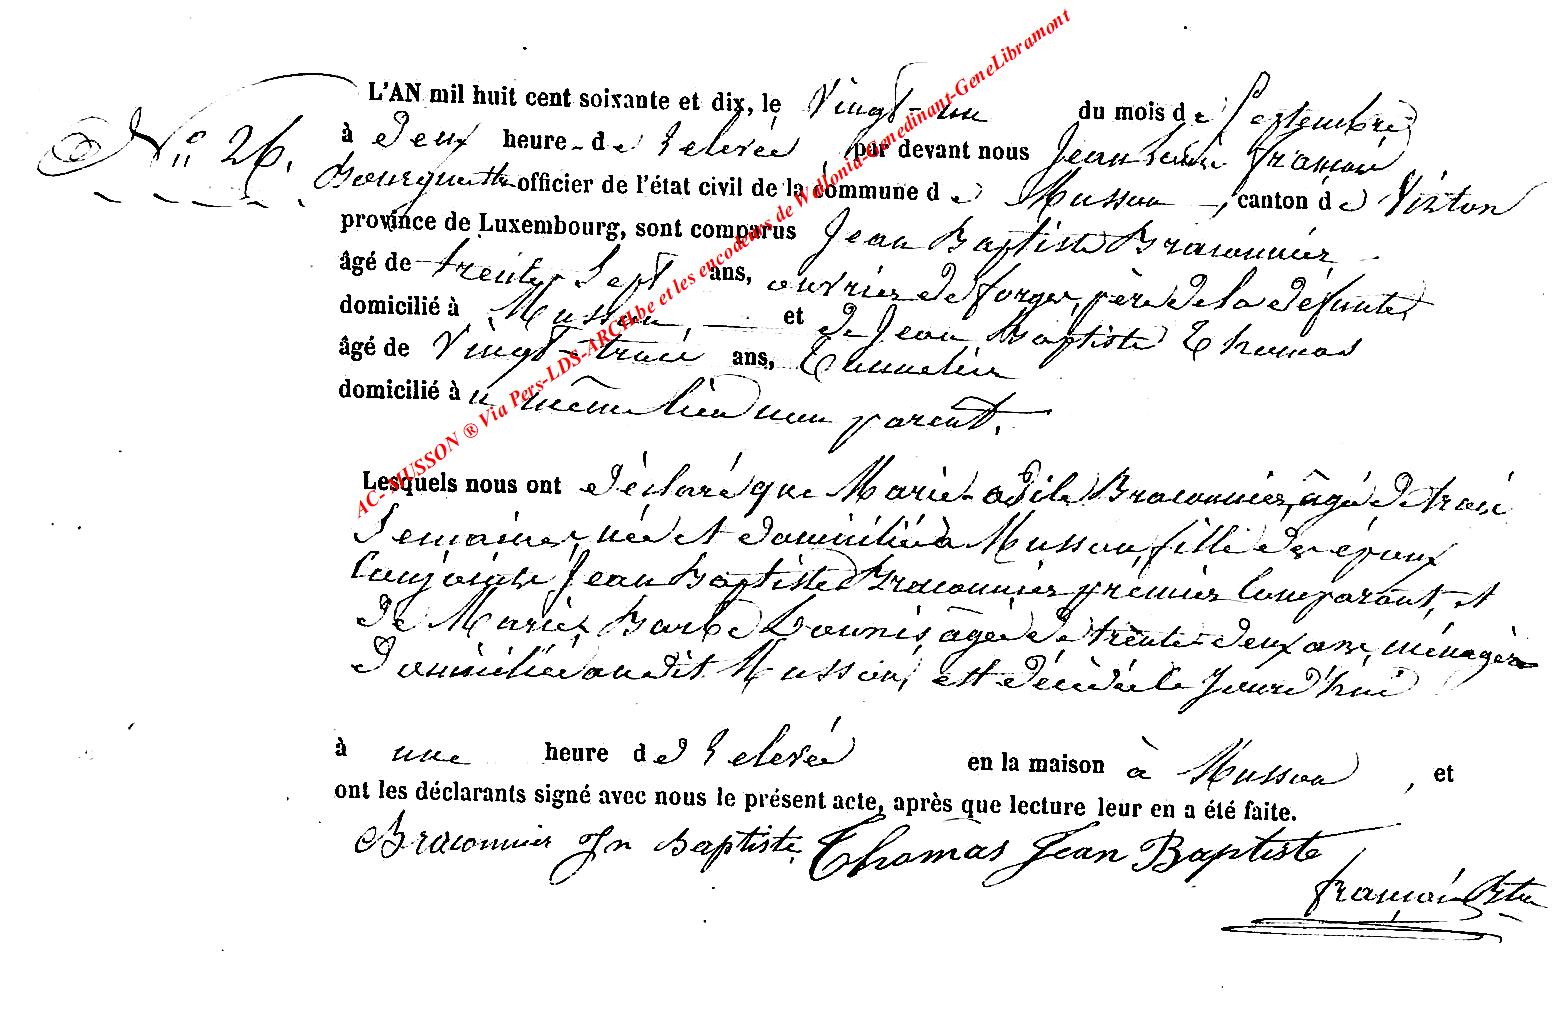 N° 26.
L'AN mil huit cent soixante et dix, le Vingt-un du mois de Septembre
à Deux heure - de Relevée, par devant nous Jean François
Bourgmestre officier de l'état civil de la commune de Musson -, canton de Virton
province de Luxembourg, sont comparus Jean Baptiste Braconnier
âgé de trente Sept ans, ouvrier de forges, père de la défunte,
domicilié à Musson, et de Jean Baptiste Thomas
âgé de Vingt-trois ans,
domicilié à u même lieu non parent.
Lesquels nous ont déclaré que Marie Adile Braconnier, âgé de trois
Semaines, née et domiciliée à Musson, fille des époux
Conjoints Jean Baptiste Braconnier premier Comparant, et
de Marie Barbe Lounis, âgée de trente-deux ans, ménagère
domiciliée audit Musson, est décédée ce Jourd'hui
à une heure de Relevée en la maison à Musson, et
ont les déclarants signé avec nous le présent acte, après que lecture leur en a été faite.
Braconnier Jn Baptiste Thomas Jean Baptiste
François
AC- MUSSON ® Via Pers-LDS-ARCH.be et les encodeurs de Wallonia-Genedinant-GeneLibramont